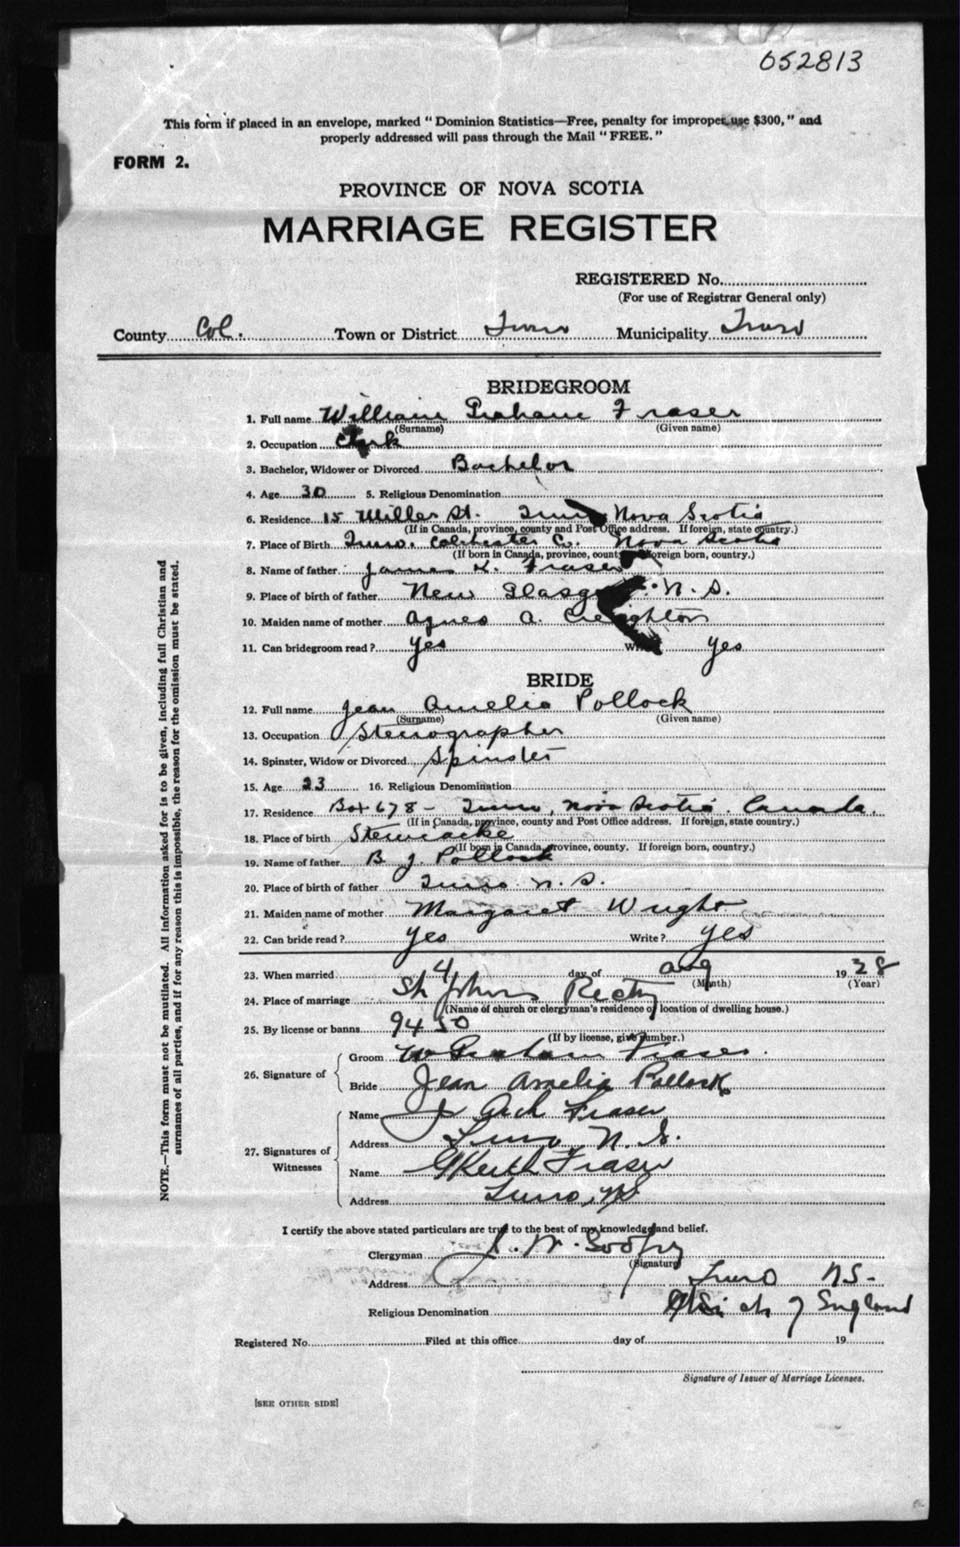 052813
This form if placed in an envelope, marked "Dominion Statistics—Free, penalty for improper use $300," and
properly addressed will pass through the Mail "FREE."
FORM 2.
PROVINCE OF NOVA SCOTIA
MARRIAGE REGISTER
REGISTERED No.
(For use of Registrar General only)
County Col. Town or District Truro Municipality Truro
BRIDEGROOM
1. Full name William Graham Fraser
(Surname) (Given name)
2. Occupation Clerk
3. Bachelor, Widower or Divorced Bachelor
4. Age 30 5. Religious Denomination
6. Residence 15 Miller St. Truro Nova Scotia
(If in Canada, province, county and Post Office address. If foreign, state country.)
7. Place of Birth Truro, Colchester Co. Nova Scotia
(If born in Canada, province, county. If foreign born, country.)
8. Name of father James K. Fraser
9. Place of birth of father New Glasgow N. S.
10. Maiden name of mother Agnes A. Creighton
11. Can bridegroom read? Yes Write? Yes
BRIDE
12. Full name Jean Amelia Pollock
(Surname) (Given name)
13. Occupation Stenographer
14. Spinster, Widow or Divorced Spinster
15. Age 23 16. Religious Denomination
17. Residence Box 678 - Truro, Nova Scotia. Canada.
(If in Canada, province, county and Post Office address. If foreign, state country.)
18. Place of birth Stewiacke
(If born in Canada, province, county. If foreign born, country.)
19. Name of father B J. Pollock
20. Place of birth of father Truro N. S.
21. Maiden name of mother Margaret Wright
22. Can bride read? Yes Write? Yes
23. When married 4 day of Aug 1928
(Month) (Year)
24. Place of marriage St Johns Rectory
(Name of church or clergyman's residence or location of dwelling house.)
25. By license or banns 9450
(If by license, give number.)
26. Signature of
Groom W Graham Fraser.
Bride Jean Amelia Pollock
27. Signatures of Witnesses
Name J Arch Fraser
Address Truro, N. S.
Name G Keith Fraser
Address Truro, NS
I certify the above stated particulars are true to the best of my knowledge and belief.
Clergyman W.
(Signature)
Address Truro NS-
Religious Denomination Ch of England
Registered No. Filed at this office day of 19
Signature of Issuer of Marriage Licenses.
[SEE OTHER SIDE]
NOTE.—This form must not be mutilated. All information asked for is to be given, including full Christian and
surnames of all parties, and if for any reason this is impossible, the reason for the omission must be stated.